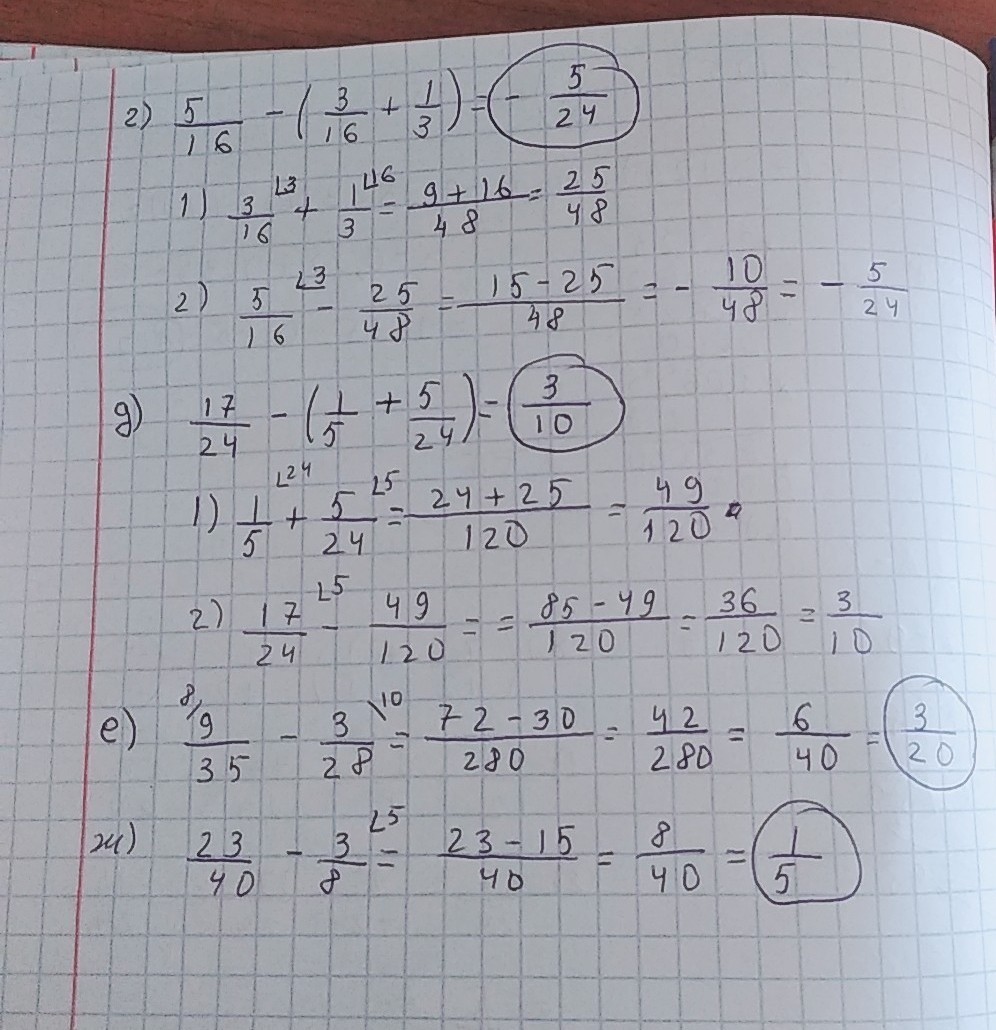 г) 5/16 - (3/16 + 1/3) = - 5/24
1) 3/16 ∟3 + 1/3 ∟16 = (9 + 16)/48 = 25/48
2) 5/16 ∟3 - 25/48 = (15 - 25)/48 = - 10/48 = - 5/24
д) 17/24 - (1/5 + 5/24) = 3/10
1) 1/5 ∟24 + 5/24 ∟5 = (24 + 25)/120 = 49/120.
2) 17/24 ∟5 - 49/120 = = (85 - 49)/120 = 36/120 = 3/10
е) 8/ 9/35 - 3/28 \10 = (72 - 30)/280 = 42/280 = 6/40 = 3/20
ж) 23/40 - 3/8 ∟5 = (23 - 15)/40 = 8/40 = 1/5